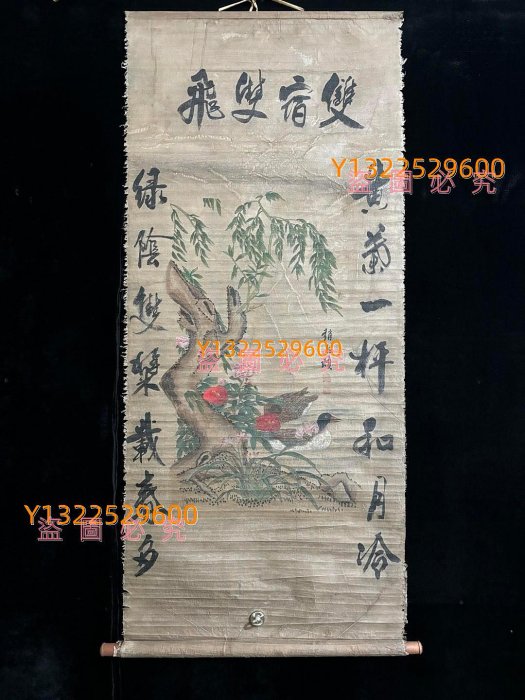 雙宿雙飛
Y1322529600
盜圖必究
黄一枰和月冷
绿陰雙槳載春多
Y1322529600
盜圖必究
Y1322529600
盜圖必究